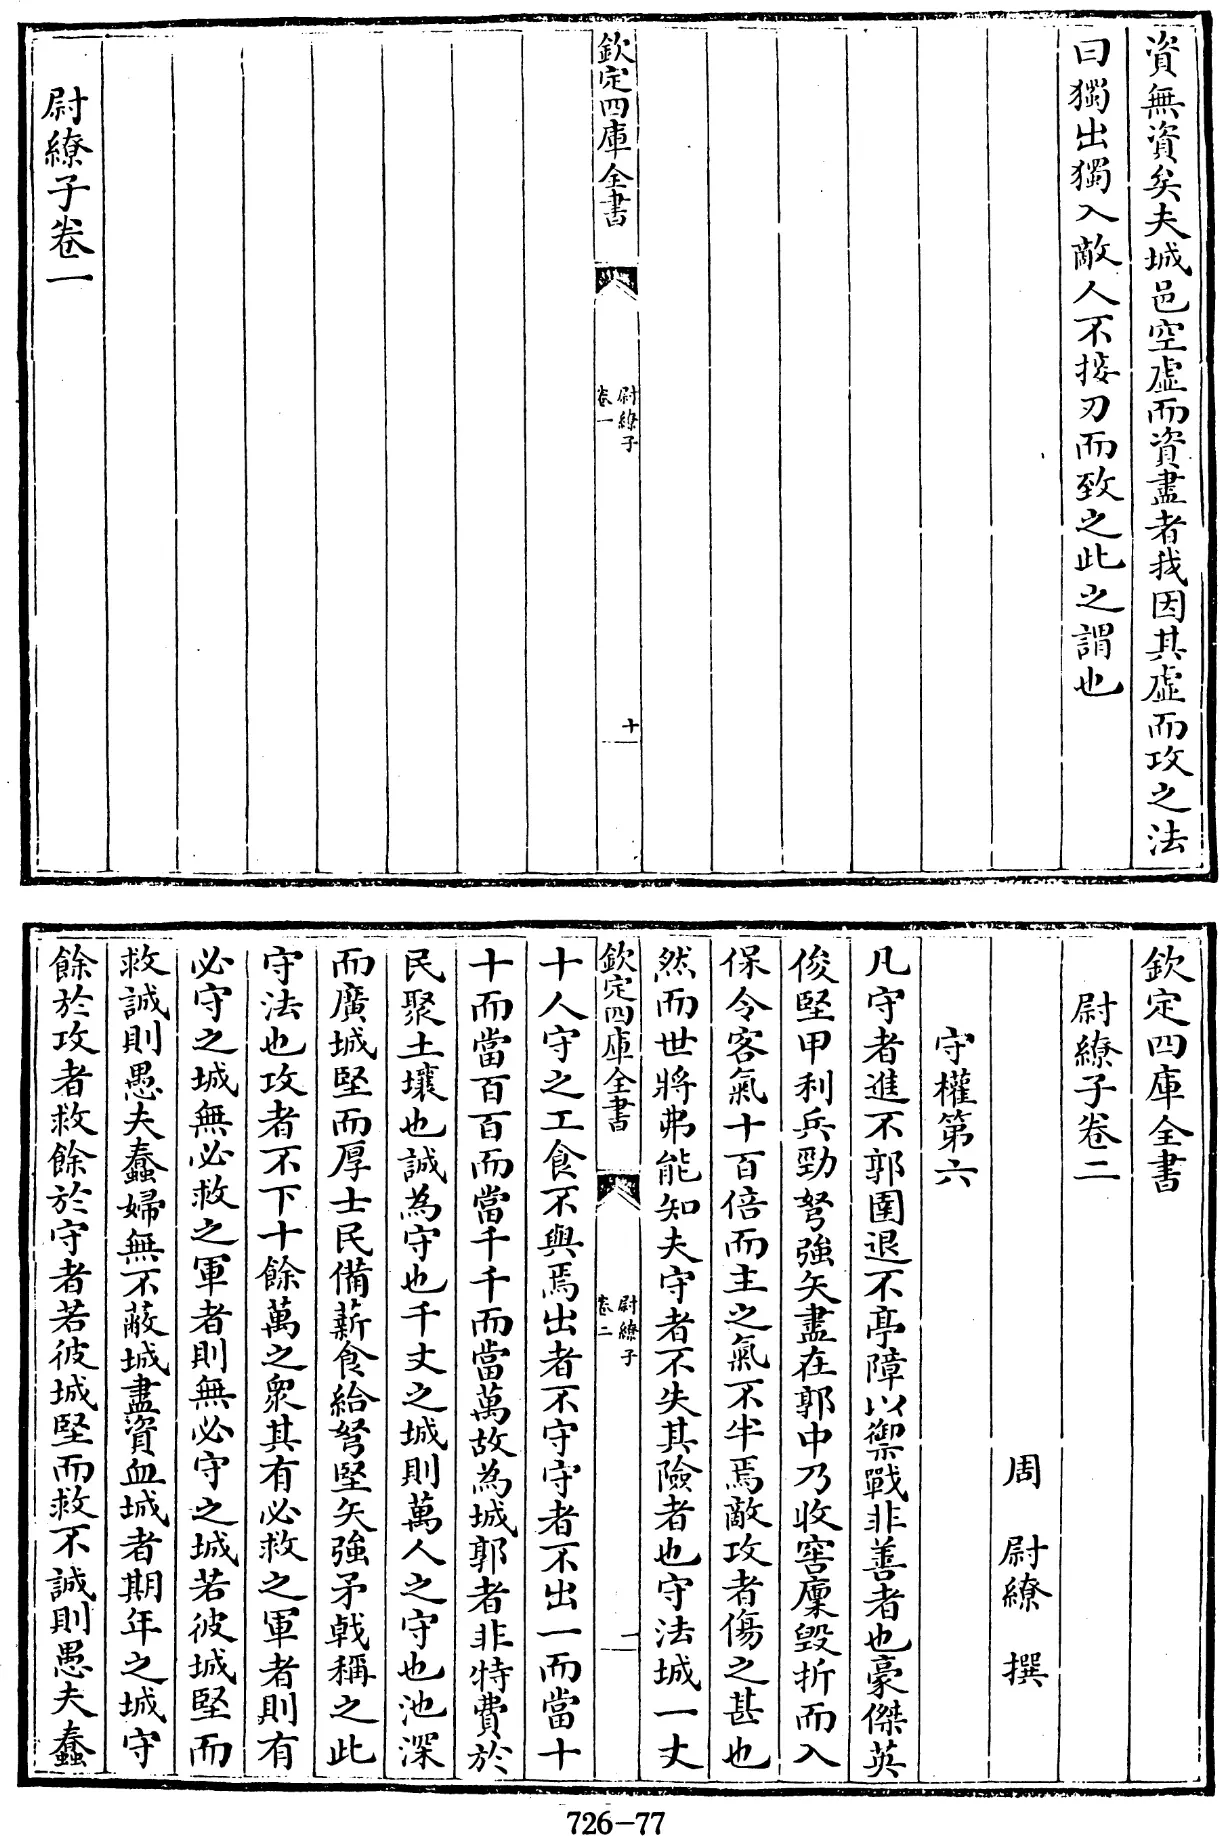 資無資矣夫城邑空虛而資盡者我因其虛而攻之法
曰獨出獨入敵人不接刃而致之此之謂也
欽定四庫全書
尉繚子
卷一
十
尉繚子卷一
欽定四庫全書
尉繚子卷二
周 尉繚 撰
守權第六
凡守者進不郭圉退不亭障以禦戰非善者也豪傑英
俊堅甲利兵勁弩強矢盡在郭中乃收窖廩毀折而入
保令客氣十百倍而主之氣不半焉敵攻者傷之甚也
然而世將弗能知夫守者不失其險者也守法城一丈
欽定四庫全書
尉繚子
卷二
一
十人守之工食不與焉出者不守守者不出一而當十
十而當百百而當千千而當萬故為城郭者非特費於
民聚土壤也誠為守也千丈之城則萬人之守也池深
而廣城堅而厚士民備薪食給弩堅矢強矛戟稱之此
守法也攻者不下十餘萬之眾其有必救之軍者則有
必守之城無必救之軍者則無必守之城若彼城堅而
救誠則愚夫蠢婦無不蔽城盡資血城者期年之城守
餘於攻者救餘於守者若彼城堅而救不誠則愚夫蠢
726-77